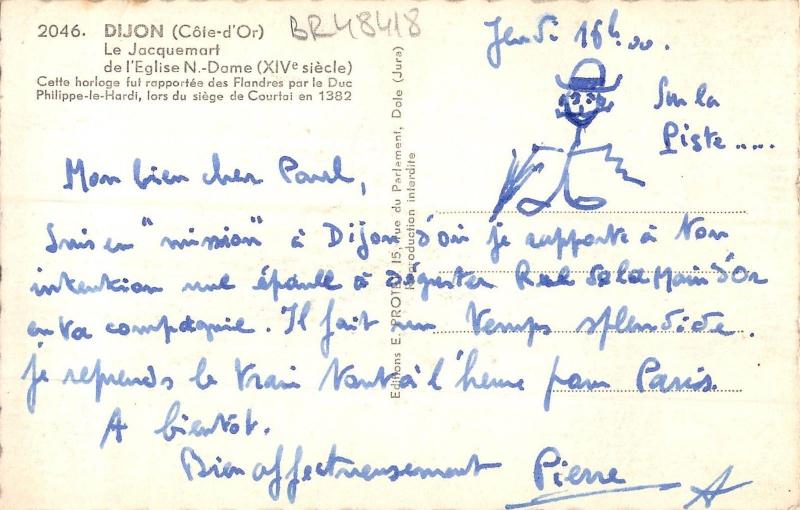 2046. DIJON (Côte-d'Or)
Le Jacquemart
de l'Eglise N.-Dame (XIVe siècle)
Cette horloge fut rapportée des Flandres par le Duc
Philippe-le-Hardi, lors du siège de Courtai en 1382
BR48418
Editions E. PROTET, 15, rue du Parlement, Dole (Jura)
Reproduction interdite
Jeudi 16h.00.
Sur la
Piste.....
Mon bien cher Paul,
Suis en "mission" à Dijon d'où je rapporte à Ton
intention une épaule à déguster Rue de la Main d'Or
en Ta compagnie. Il fait un Temps splendide.
je reprends le Train Tout à l'heure pour Paris.
A bientot.
Bien affectueusement Pierre